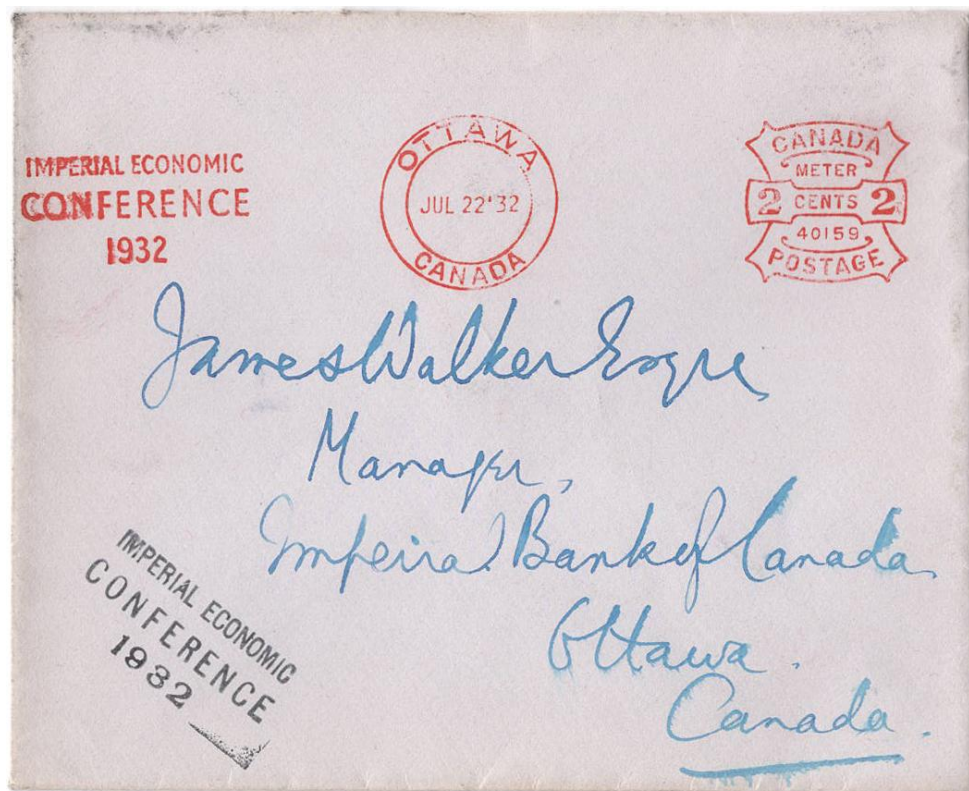 IMPERIAL ECONOMIC
CONFERENCE
1932
OTTAWA
JUL 22'32
CANADA
CANADA
METER
2 CENTS 2
40159
POSTAGE
James Walker Esqre,
Manager,
Imperial Bank of Canada
Ottawa.
Canada.
IMPERIAL ECONOMIC
CONFERENCE
1932